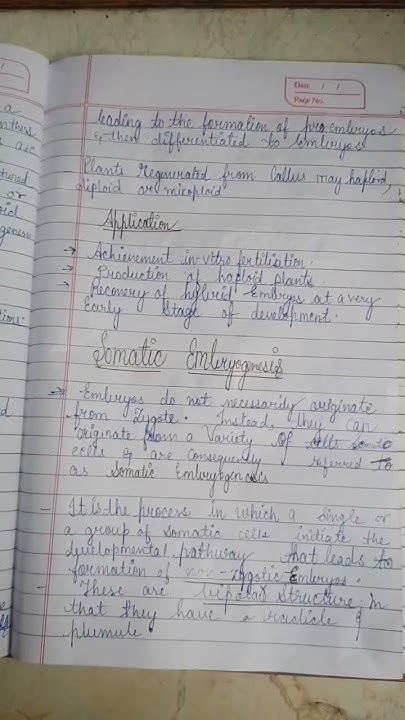 Date / /
Page No.
leading to the formation of proembryos
& then differentiated to embryos
Plants regenerated from Callus may haploid,
diploid or mixoploid
Application
→ Achievement in vitro fertiliation.
→ Production of haploid plants.
→ Recovery of hybrid Embryos at a very
Early Stage of development.
Somatic Embryogenesis
⇒ Embryos do not necessarily originate
from Zygote. Instead, they can
originate from a Variety of cells somatic
cells & are Consequently referred to
as Somatic Embryogenesis
- It is the process in which a single or
a group of somatic cells initiate the
developmental pathway that leads to
formation of non-zygotic Embryos.
- These are bipolar structure in
that they have a radicle &
plumule.